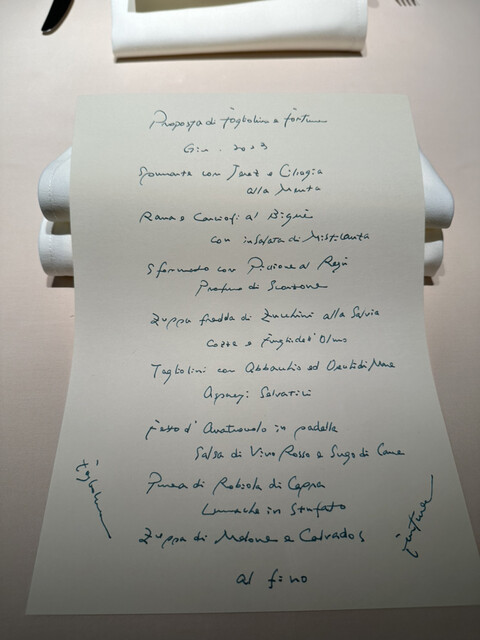 Proposta di Tagliolino e fortuna
Giu. 2023
Spumante con Jerez e Ciliegia
alla Menta
Rana e Carciofi al Bignè
con insalata di Misticanza
Sformato con Piccione al Ragù
Profumo di Scorzone
Zuppa fredda di Zucchini alla Salvia
Cozze e Funghi d'Olmo
Tagliolini con Abbacchio ed Ostriche di Mare
Asparagi Selvatici
Petto d'Anatra in padella
Salsa di Vino Rosso e Sugo di Carne
Purea di Robiola di Capra
Lumache in Stufato
Zuppa di Melone e Calvados
al fino